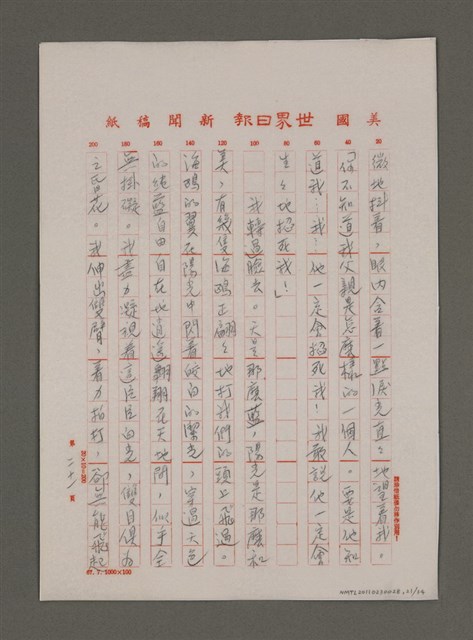 美國世界日報新聞稿紙
微地抖着，眼內含着一點淚光直直地望着我。
「你不知道我父親是怎麼樣的一個人。要是他知
道我…我…他一定會掐死我！我敢說他一定會
生生地掐死我！」
我轉過臉去。天是那麼藍，陽光是那麼和
美，有幾隻海鷗正翩々地打我們的頭上飛過。
海鷗的翼在陽光中閃着皎白的潔光，穿過天色
的純藍自由自在地逍遙翱翔在天地間，似乎全
無掛礙。我盡力凝視着這片白光，雙目俱為
之昏花。我伸出雙臂，着力拍打，卻無能飛起
20
40
60
80
100
120
140
160
180
200
第二十一頁
NMTL20110230028.21/24